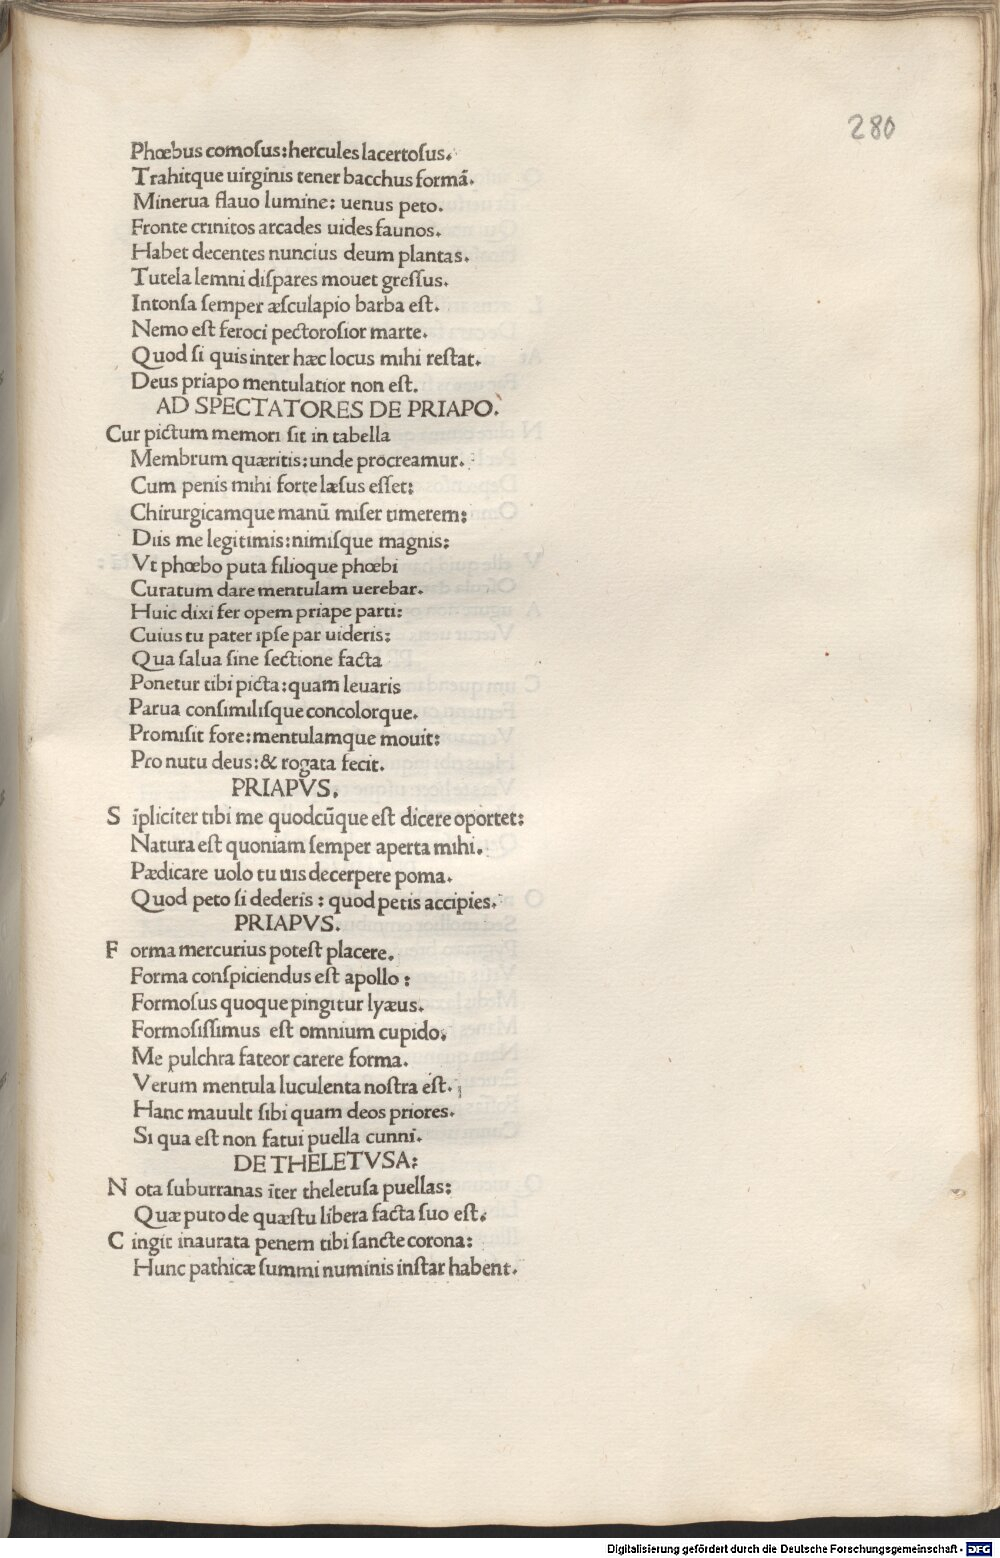 280
Phœbus comoſus:hercules lacertoſus.
Trahitque uirginis tener bacchus formā.
Minerua flauo lumine: uenus peto.
Fronte crinitos arcades uides faunos.
Habet decentes nuncius deum plantas.
Tutela lemni diſpares mouet greſſus.
Intonſa ſemper æſculapio barba eſt.
Nemo eſt feroci pectoroſior marte.
Quod ſi quis inter hæc locus mihi reſtat.
Deus priapo mentulatior non eſt.
AD SPECTATORES DE PRIAPO.
Cur pictum memori ſit in tabella
Membrum quæritis:unde procreamur.
Cum penis mihi forte læſus eſſet:
Chirurgicamque manū miſer timerem:
Diis me legitimis:nimiſque magnis:
Vt phœbo puta filioque phœbi
Curatum dare mentulam uerebar.
Huic dixi fer opem priape parti:
Cuius tu pater ipſe par uideris:
Qua ſalua ſine ſectione facta
Ponetur tibi picta:quam leuaris
Parua conſimiliſque concolorque.
Promiſit fore:mentulamque mouit:
Pro nutu deus:& rogata fecit.
PRIAPVS.
S īpliciter tibi me quodcūque eſt dicere oportet:
Natura eſt quoniam ſemper aperta mihi.
Pædicare uolo tu uis decerpere poma.
Quod peto ſi dederis : quod petis accipies.
PRIAPVS.
F orma mercurius poteſt placere.
Forma conſpiciendus eſt apollo :
Formoſus quoque pingitur lyæus.
Formoſiſſimus eſt omnium cupido.
Me pulchra fateor carere forma.
Verum mentula luculenta noſtra eſt.
Hanc mauult ſibi quam deos priores.
Si qua eſt non fatui puella cunni.
DE THELETVSA:
N ota ſuburranas īter theletuſa puellas:
Quæ puto de quæſtu libera facta ſuo eſt.
C ingit inaurata penem tibi ſancte corona:
Hunc pathicæ ſummi numinis inſtar habent.
Digitalisierung gefördert durch die Deutsche Forschungsgemeinschaft - DFG